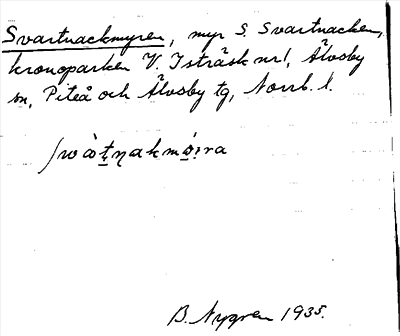 Svartnackmyren, myr S. Svartnacken,
kronoparken V. Isträsk nr 1, Älvsby
sn, Piteå och Älvsby tg, Norrb. l.
ʃwȧ̀ṯnakmǫ̀:ra
B. Nygren 1935.